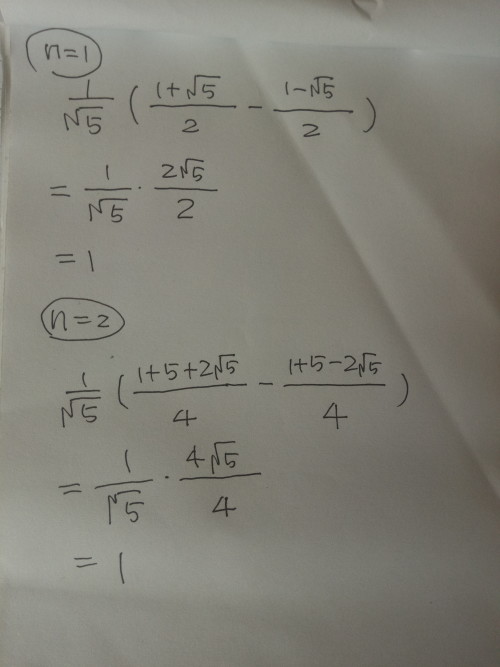 n=1
1/√5 ( (1+√5)/2 − (1−√5)/2 )
= 1/√5 · 2√5/2
= 1
n=2
1/√5 ( (1+5+2√5)/4 − (1+5−2√5)/4 )
= 1/√5 · 4√5/4
= 1